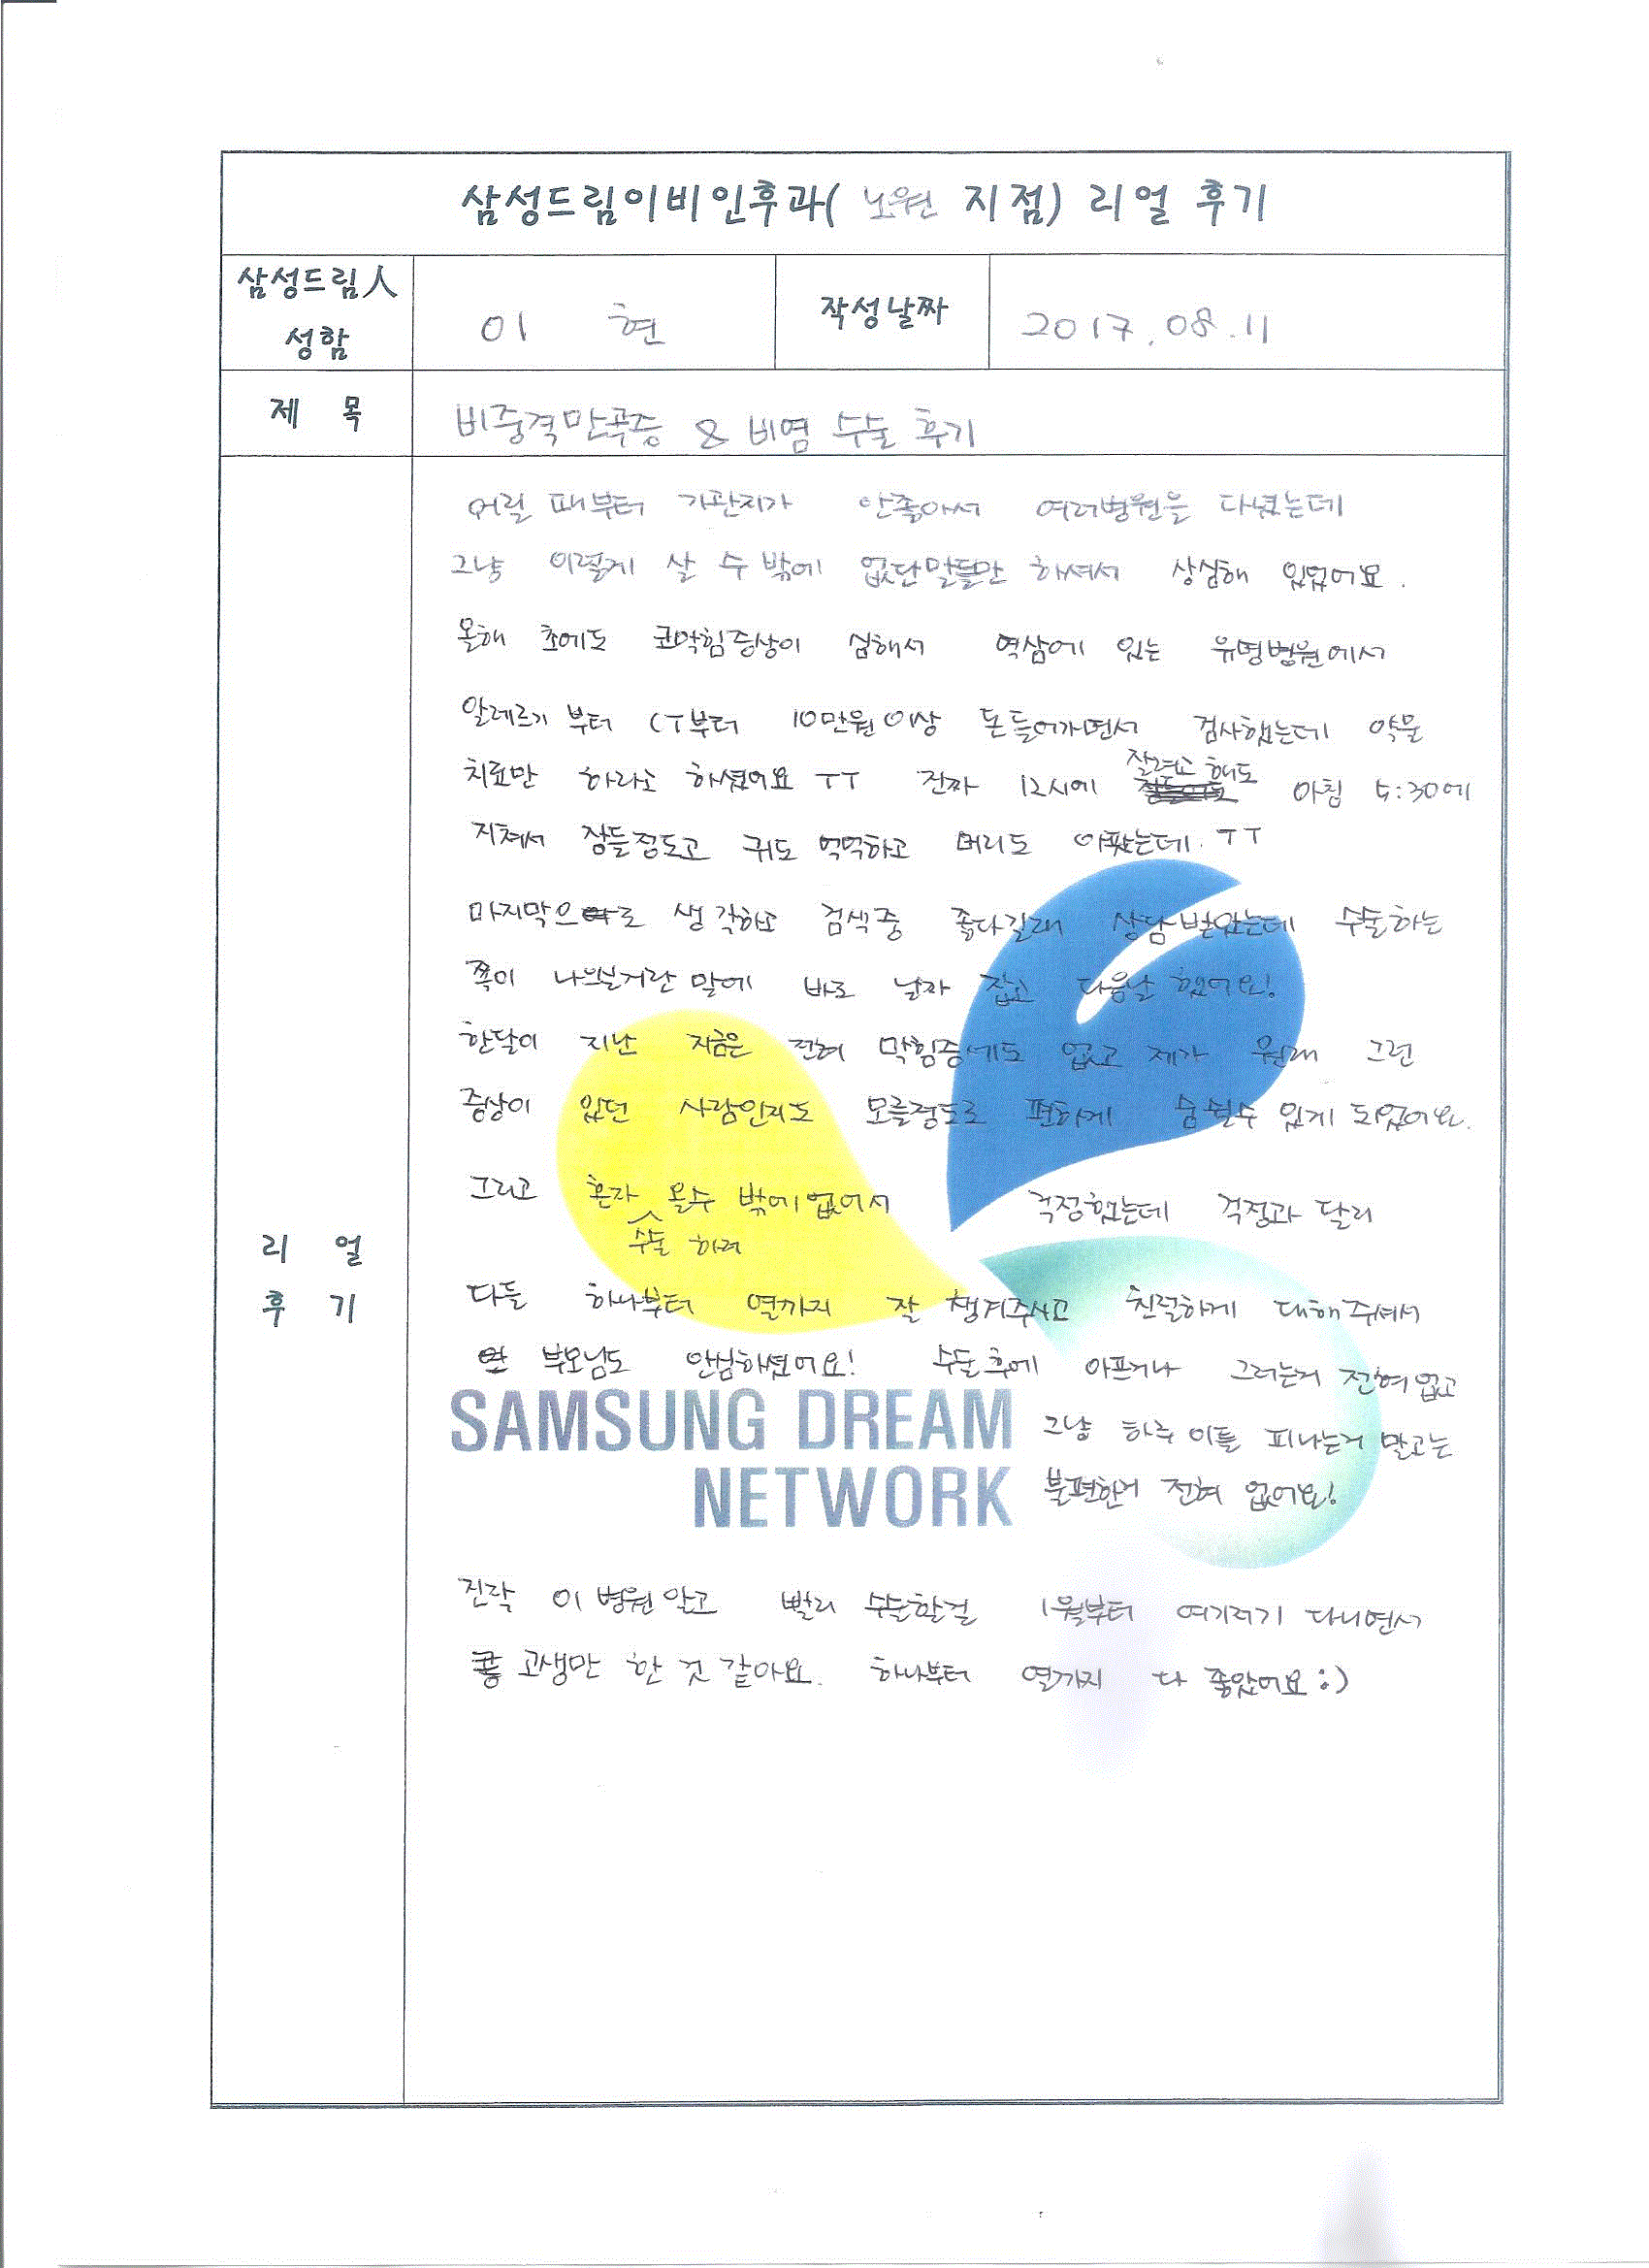 삼성드림이비인후과( 노원 지점) 리얼 후기
삼성드림人
성함
이 현
작성날짜
2017.08.11
제 목
비중격만곡증 & 비염 수술 후기
리 얼
후 기
어릴 때부터 기관지가 안좋아서 여러병원을 다녔는데
그냥 이렇게 살 수 밖에 없단말들만 하셔서 상심해 있었어요.
올해 초에도 코막힘증상이 심해서 역삼에 있는 유명병원에서
알레르기 부터 CT부터 10만원이상 돈들어가면서 검사했는데 약물
치료만 하라고 하셨어요 ㅜㅜ 진짜 12시에 잘려고 해도 아침 5:30에
지쳐서 잠들정도고 귀도 먹먹하고 머리도 아팠는데.ㅜㅜ
마지막으로 생각하고 검색중 좋다길래 상담받았는데 수술하는
쪽이 나쁘거란 말에 바로 날자 잡고 다음날 했어요!
한달이 지난 지금은 전혀 막힘증세도 없고 제가 원래 그런
증상이 있던 사람인지도 모를정도로 편하게 숨쉴수 있게 되었어요.
그리고 혼자 수술 하러 올수 밖에없어서 걱정했는데 걱정과 달리
다들 하나부터 열까지 잘 챙겨주시고 친절하게 대해주셔서
부모님도 안심하셨어요! 수술후에 아프거나 그러는거 전혀없고
그냥 하루이틀 피나는거 말고는
불편한거 전혀 없어요!
SAMSUNG DREAM
NETWORK
진작 이 병원알고 빨리 수술할걸 1월부터 여기저기 다니면서
고생만 한 것 같아요. 하나부터 열까지 다 좋았어요:)